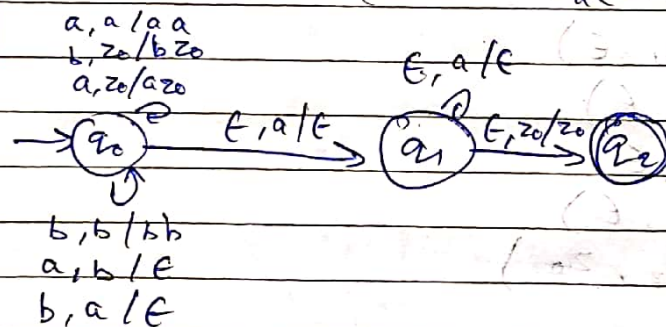 a, a / a a
b, z0 / b z0
a, z0 / a z0
ϵ, a / ϵ
q0
ϵ, a / ϵ
q1
ϵ, z0 / z0
q2
b, b / bb
a, b / ϵ
b, a / ϵ